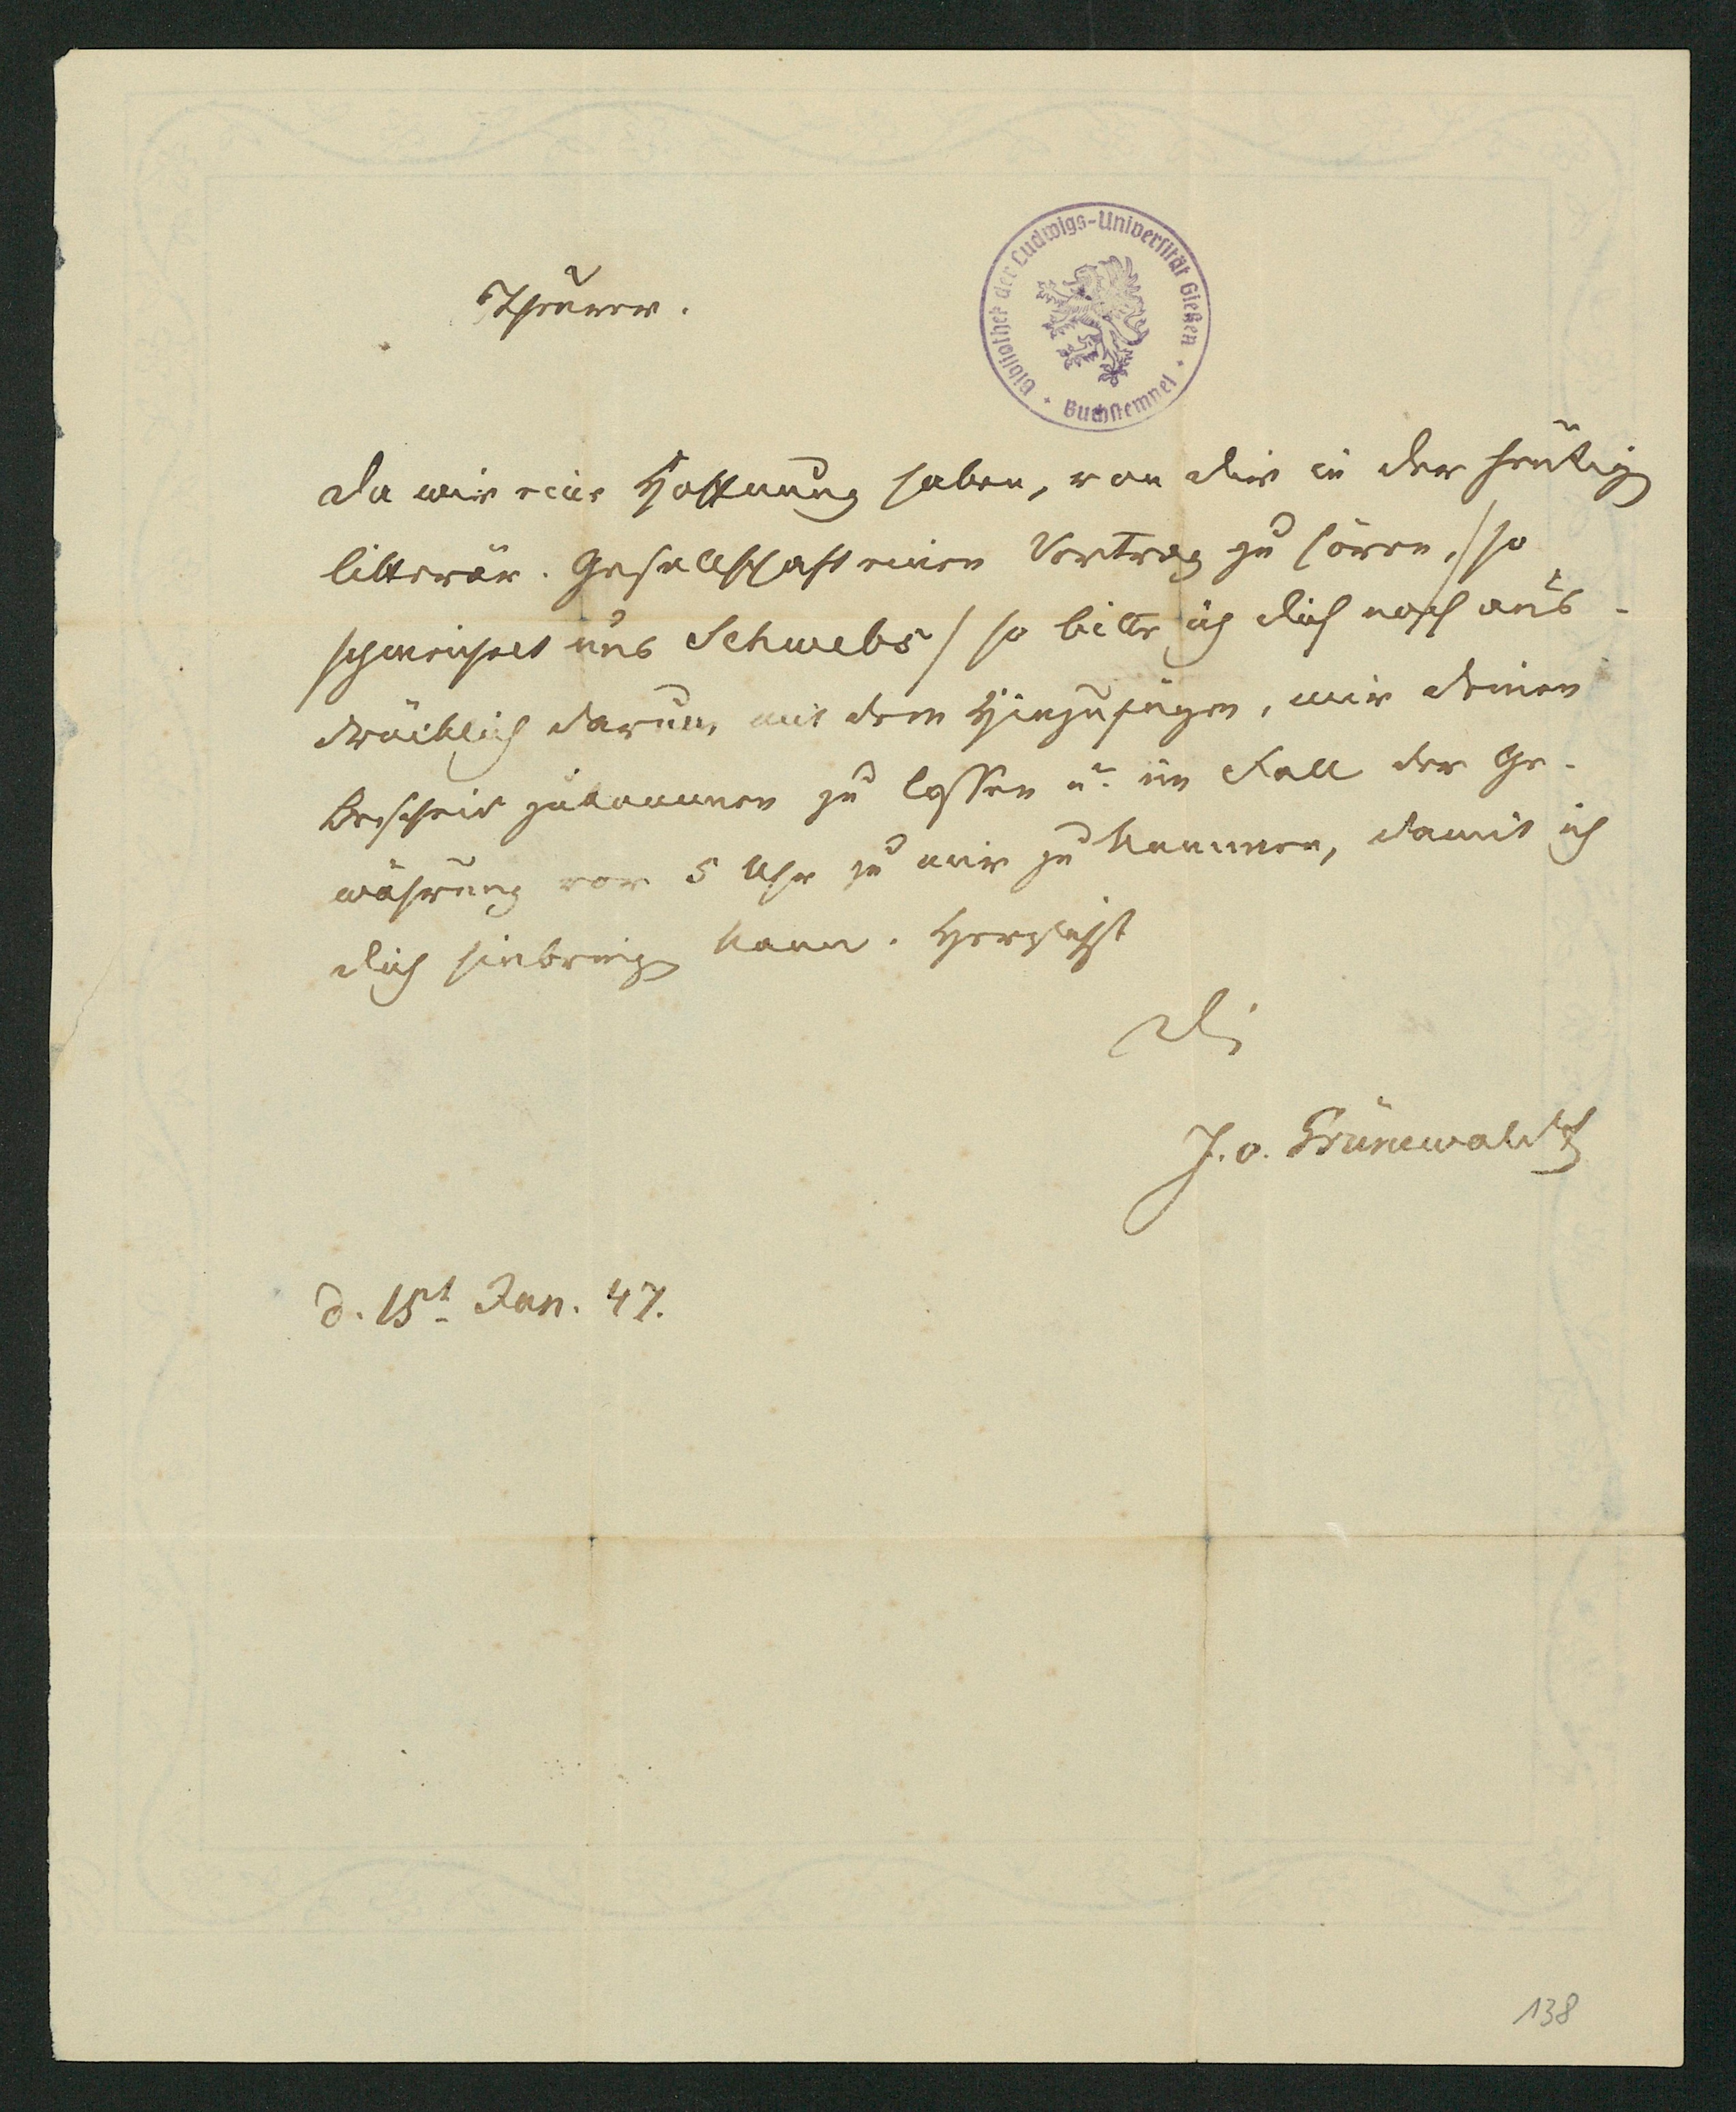 Bibliothek der Ludwigs-Universität Gießen · Buchstempel ·
Theurer.
Da wir eine Hoffnung haben, von Dir in der heutig
litterär. Gesellschaft einen Vortrag zu hören, / so
schmeichelt uns Schwebs / so bitte ich Dich noch aus-
drücklich darum, mit dem Hinzufügen, mir Deinen
Bescheid zukommen zu lassen u. im Fall der Ge-
währung vor 5 Uhr zu mir zu kommen, damit ich
Dich hinbring kann. Herzlichst
J. v. Grünewaldt
d. 15t Jan. 47.
138